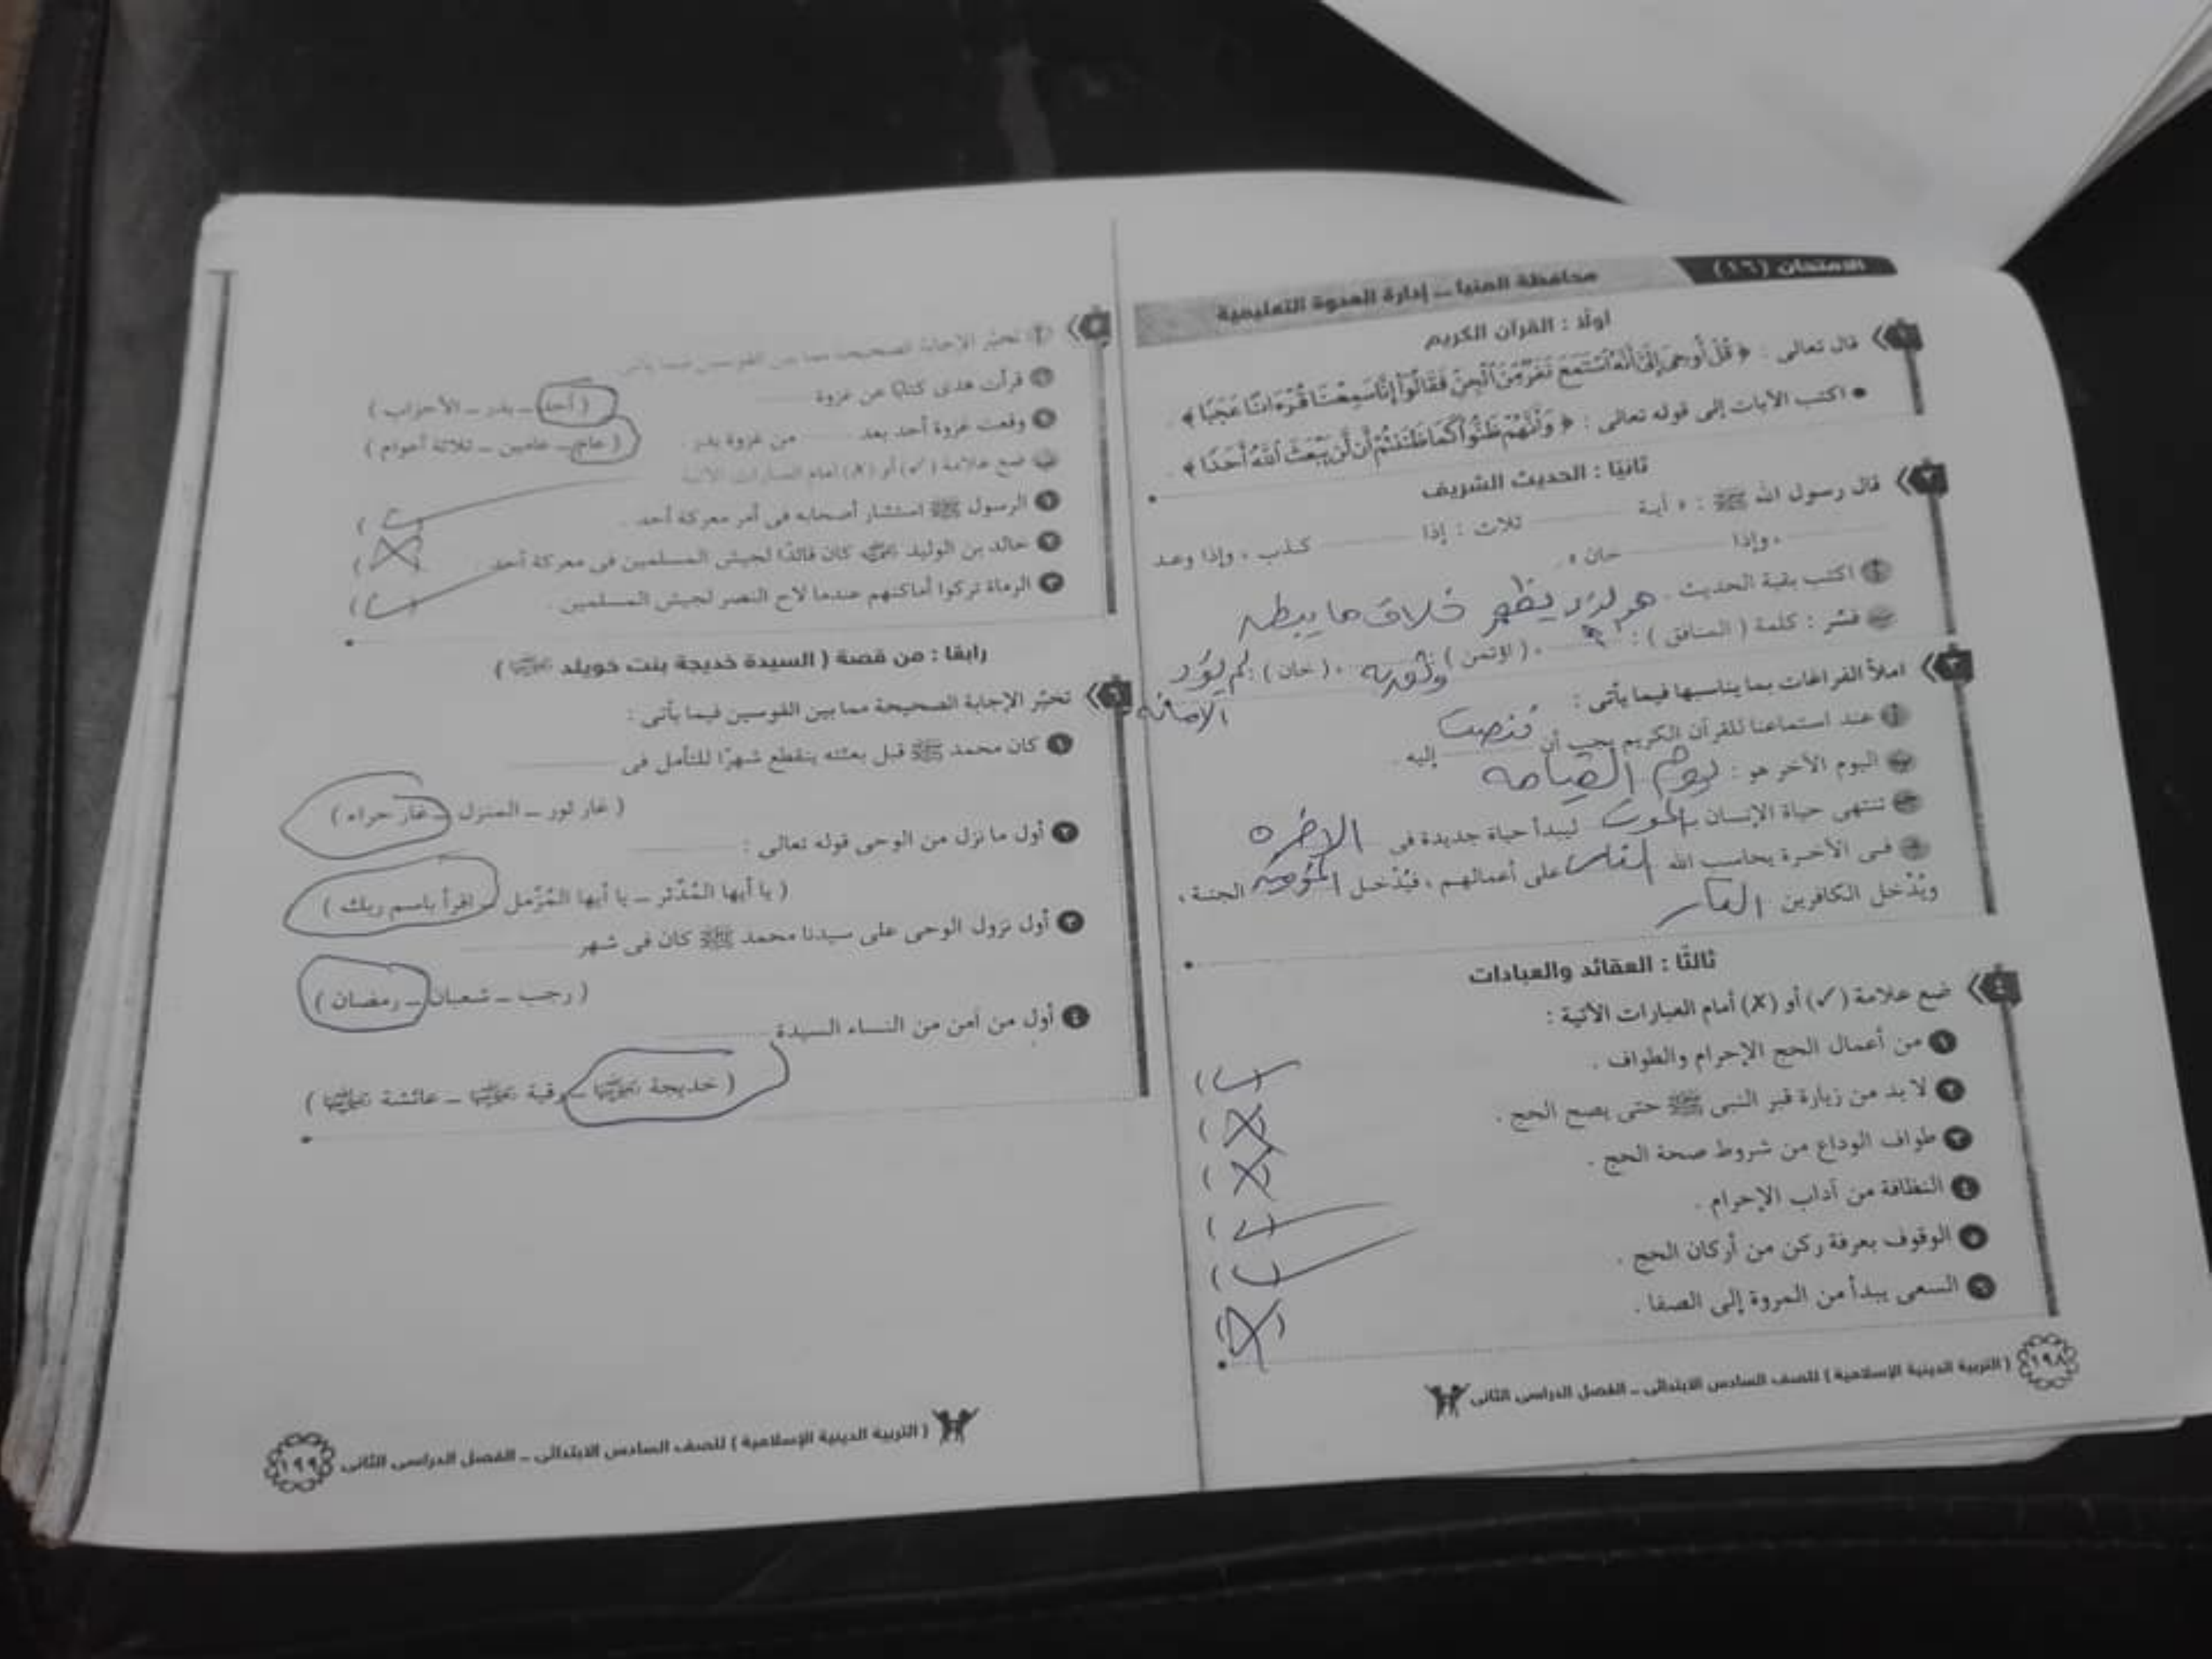 الامتحان (١٦)
محافظة المنيا – إدارة العدوة التعليمية
أولًا : القرآن الكريم
١ قال تعالى : ﴿ قُلْ أُوحِىَ إِلَىَّ أَنَّهُ ٱسْتَمَعَ نَفَرٌ مِّنَ ٱلْجِنِّ فَقَالُوٓا۟ إِنَّا سَمِعْنَا قُرْءَانًا عَجَبًا ﴾ .
● اكتب الآيات إلى قوله تعالى : ﴿ وَأَنَّهُمْ ظَنُّوا۟ كَمَا ظَنَنتُمْ أَن لَّن يَبْعَثَ ٱللَّهُ أَحَدًا ﴾ .
ثانيًا : الحديث الشريف
٢ قال رسول الله ﷺ : « آية ........ ثلاث : إذا ........ كذب ، وإذا وعد
........ ، وإذا ........ خان » .
أ اكتب بقية الحديث .
هو الذى يظهر خلاف ما يبطن
ب فسّر : كلمة ( المنافق ) : ........ ، ( اؤتمن ) : ........ ، ( خان ) : لم يؤد
الامانه
٣ املأ الفراغات بما يناسبها فيما يأتى :
أ عند استماعنا للقرآن الكريم يجب أن ننصت إليه .
ب اليوم الآخر هو : يوم القيامه
جـ تنتهى حياة الإنسان بالموت ليبدأ حياة جديدة فى الاخره
د فى الآخرة يحاسب الله الناس على أعمالهم ، فيُدْخل المؤمنين الجنة ،
ويُدْخل الكافرين النار
ثالثًا : العقائد والعبادات
٤ ضع علامة (✓) أو (✗) أمام العبارات الآتية :
١ من أعمال الحج الإحرام والطواف . (✓)
٢ لا بد من زيارة قبر النبى ﷺ حتى يصح الحج . (✗)
٣ طواف الوداع من شروط صحة الحج . (✗)
٤ النظافة من آداب الإحرام . (✓)
٥ الوقوف بعرفة ركن من أركان الحج . (✓)
٦ السعى يبدأ من المروة إلى الصفا . (✗)
١٩٨ ( التربية الدينية الإسلامية ) للصف السادس الابتدائى – الفصل الدراسى الثانى
٥ أ تخيّر الإجابة الصحيحة مما بين القوسين فيما يأتى :
١ قرأت هدى كتابًا عن غزوة ........ ( أحد – بدر – الأحزاب )
٢ وقعت غزوة أحد بعد ........ من غزوة بدر . ( عام – عامين – ثلاثة أعوام )
ب ضع علامة (✓) أو (✗) أمام العبارات الآتية
١ الرسول ﷺ استشار أصحابه فى أمر معركة أحد . (✓)
٢ خالد بن الوليد كان قائدًا لجيش المسلمين فى معركة أحد . (✗)
٣ الرماة تركوا أماكنهم عندما لاح النصر لجيش المسلمين . (✓)
رابعًا : من قصة ( السيدة خديجة بنت خويلد )
٦ تخيّر الإجابة الصحيحة مما بين القوسين فيما يأتى :
١ كان محمد ﷺ قبل بعثته ينقطع شهرًا للتأمل فى ........
( غار ثور – المنزل – غار حراء )
٢ أول ما نزل من الوحى قوله تعالى : ........
( يا أيها المُدَّثر – يا أيها المُزَّمل – اقرأ باسم ربك )
٣ أول نزول الوحى على سيدنا محمد ﷺ كان فى شهر ........
( رجب – شعبان – رمضان )
٤ أول من آمن من النساء السيدة ........
( خديجة – رقية – عائشة )
( التربية الدينية الإسلامية ) للصف السادس الابتدائى – الفصل الدراسى الثانى ١٩٩